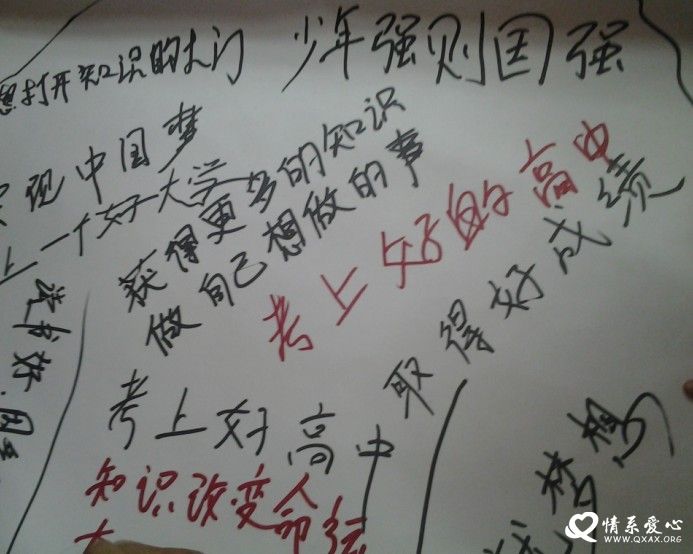 想打开知识的大门
少年强则国强
实现中国梦
上一个好大学
获得更多的知识
做自己想做的事
考上好的高中
取得好成绩
读书好
考上好高中
知识改变命运
梦想
情系爱心
WWW.QXAX.ORG